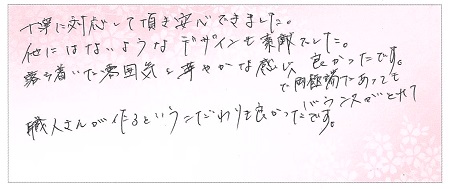 丁寧に対応して頂き安心できました。
他にはないようなデザインも素敵でした。
落ち着いた雰囲気と華やかな感じ、良かったです。
で両極端であっても
バランスがとれて
職人さんが作るというこだわりも良かったです。